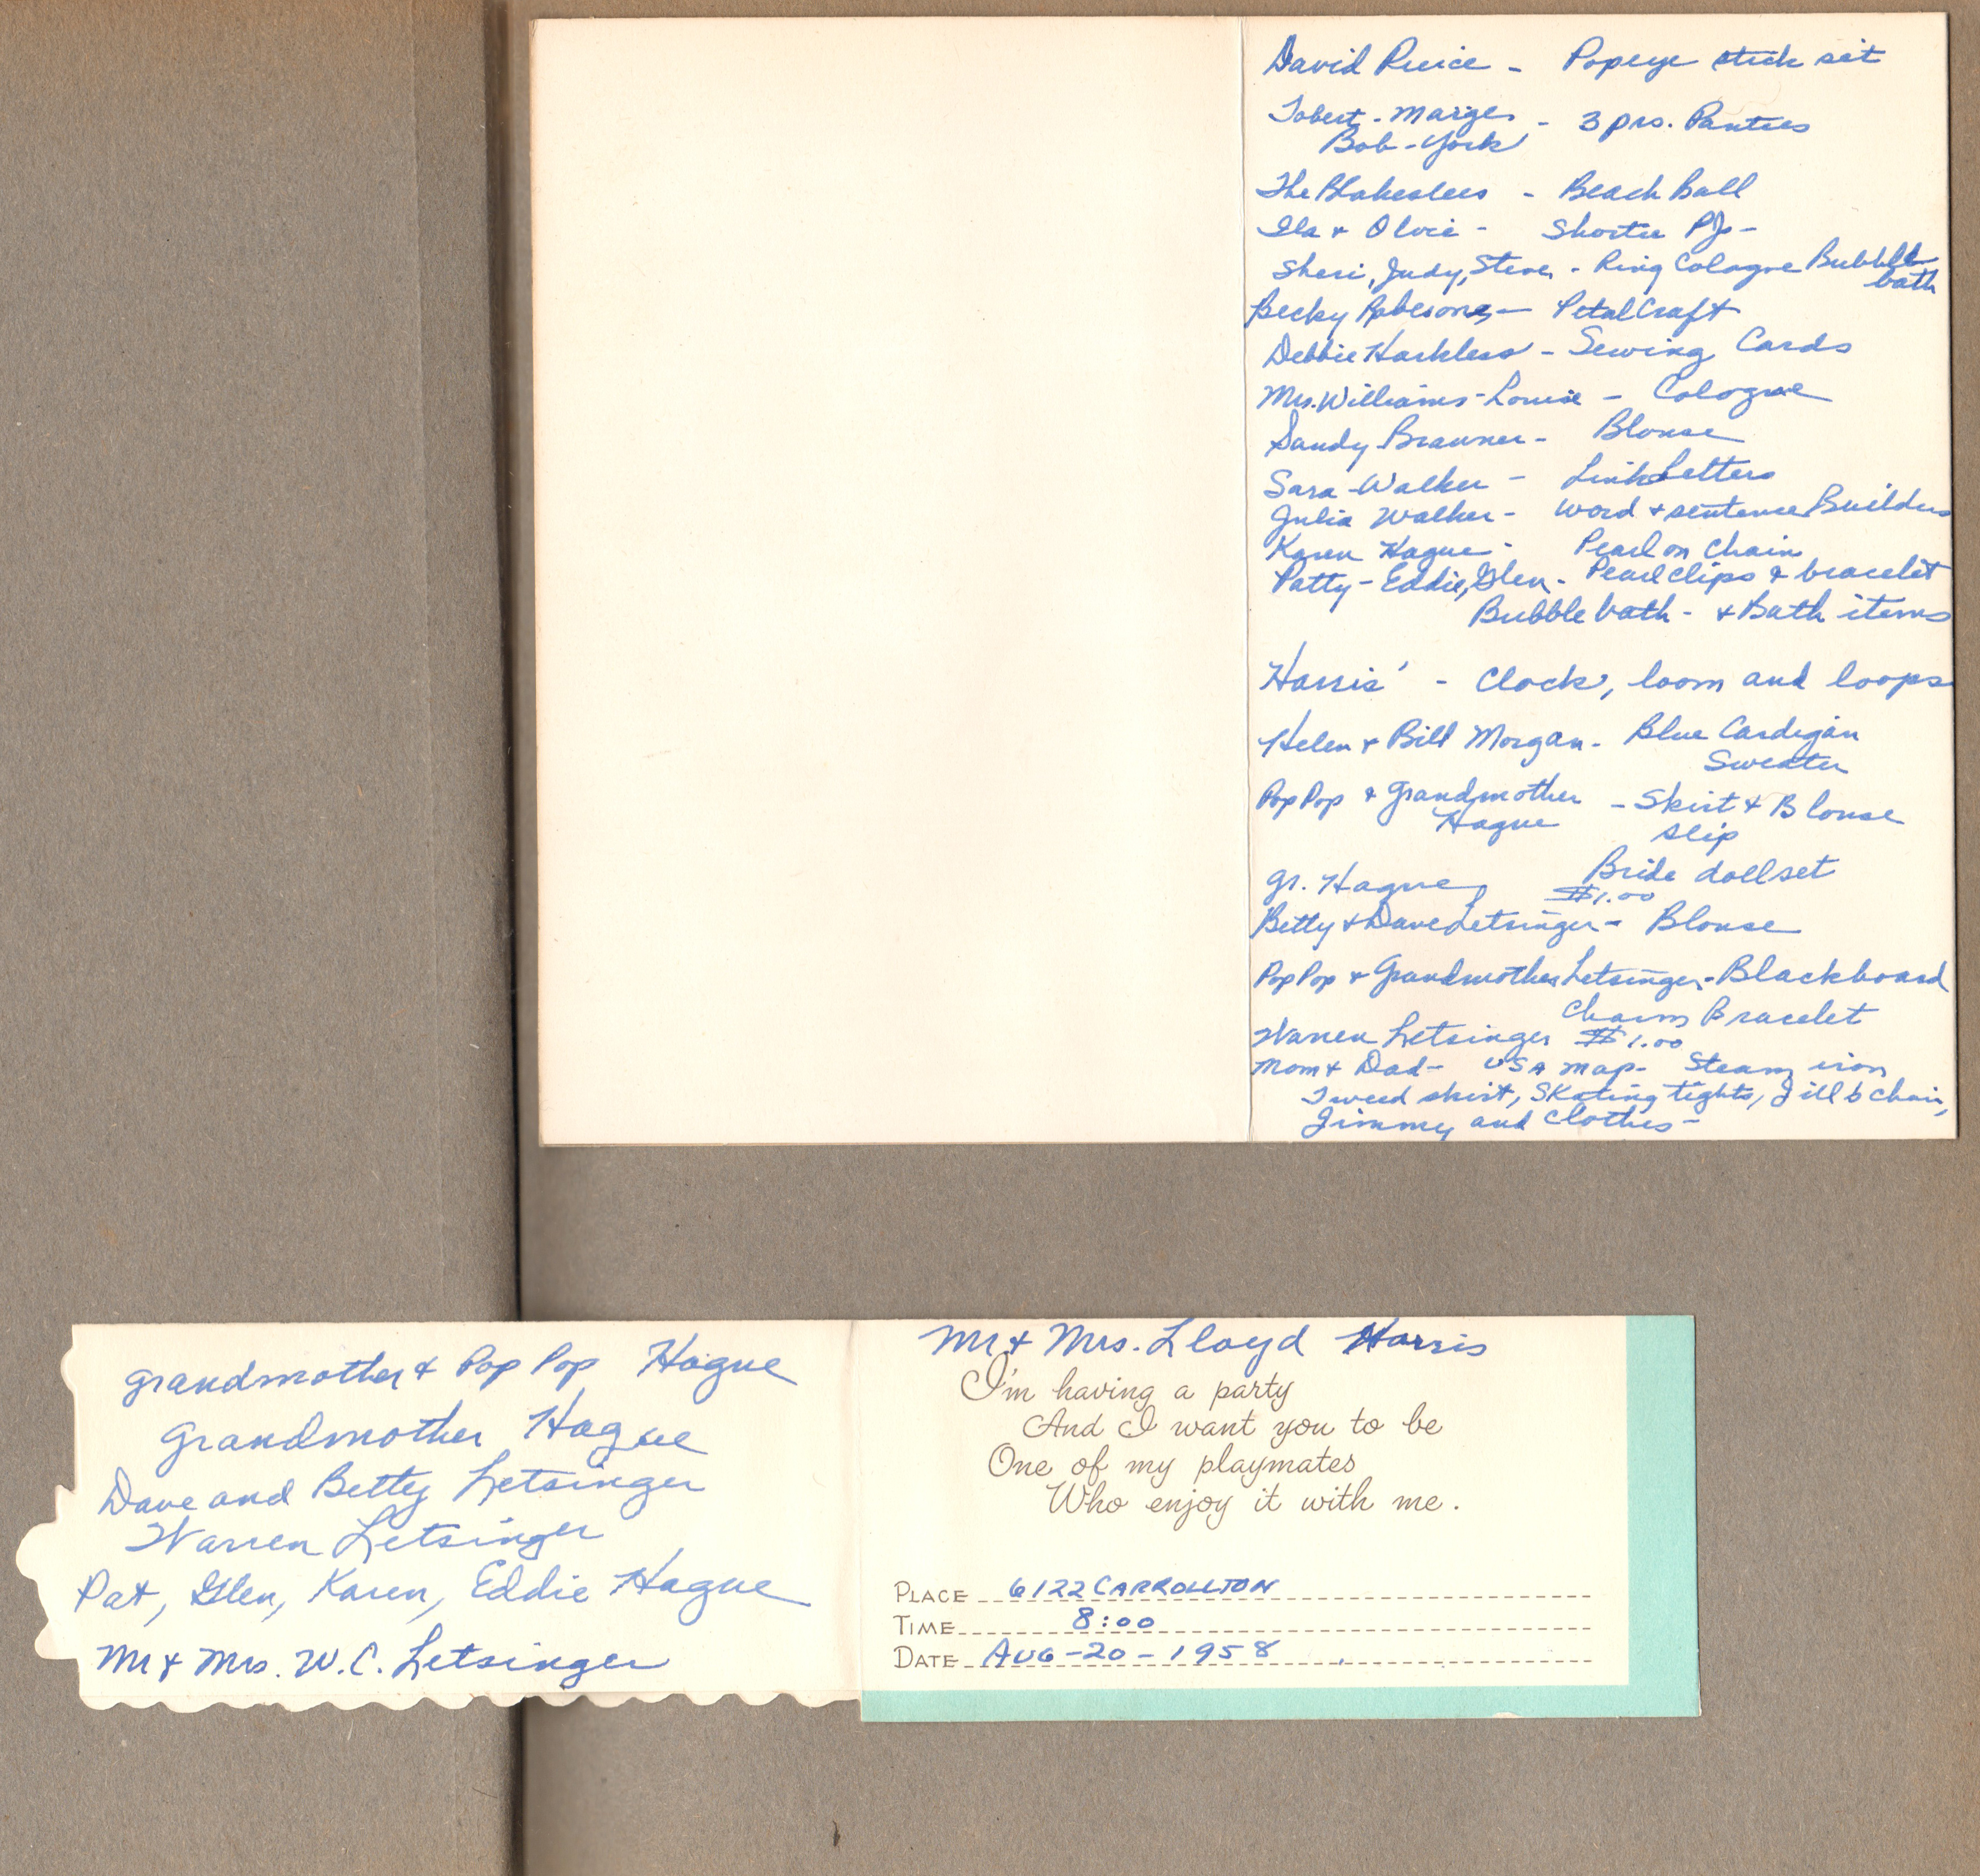 David Price - Popeye stick set
Tobert - Marges - 3 prs. Panties
Bob - York
The Blakeslees - Beach Ball
Ila & Olvie - Shortie PJ -
Sheri, Judy, Steve - Ring Cologne Bubble
bath
Becky Robesons - Petal Craft
Debbie Harkless - Sewing Cards
Mrs. Williams - Louise - Cologne
Sandy Brawner - Blouse
Sara Walker - Link Letters
Julia Walker - Word & sentence Builders
Karen Hague - Pearl on Chain
Patty - Eddie, Glen - Pearl clips & bracelet
Bubble bath - & Bath items
Harris' - Clock, loom and loops
Helen & Bill Morgan - Blue Cardigan
Sweater
Pop Pop & Grandmother - Skirt & Blouse
Hague slip
Bride doll set
Gr. Hague $1.00
Betty & Dave Letsinger - Blouse
Pop Pop & Grandmother Letsinger - Blackboard
Charm Bracelet
Warren Letsinger $1.00
Mom & Dad - USA map - Steam iron
Tweed skirt, Skating tights, Jill & chair,
Jimmy and clothes -
Grandmother & Pop Pop Hague
Grandmother Hague
Dave and Betty Letsinger
Warren Letsinger
Pat, Glen, Karen, Eddie Hague
Mr & Mrs. W. C. Letsinger
Mr & Mrs. Lloyd Harris
I'm having a party
And I want you to be
One of my playmates
Who enjoy it with me.
PLACE 6122 CARROLLTON
TIME 8:00
DATE AUG - 20 - 1958